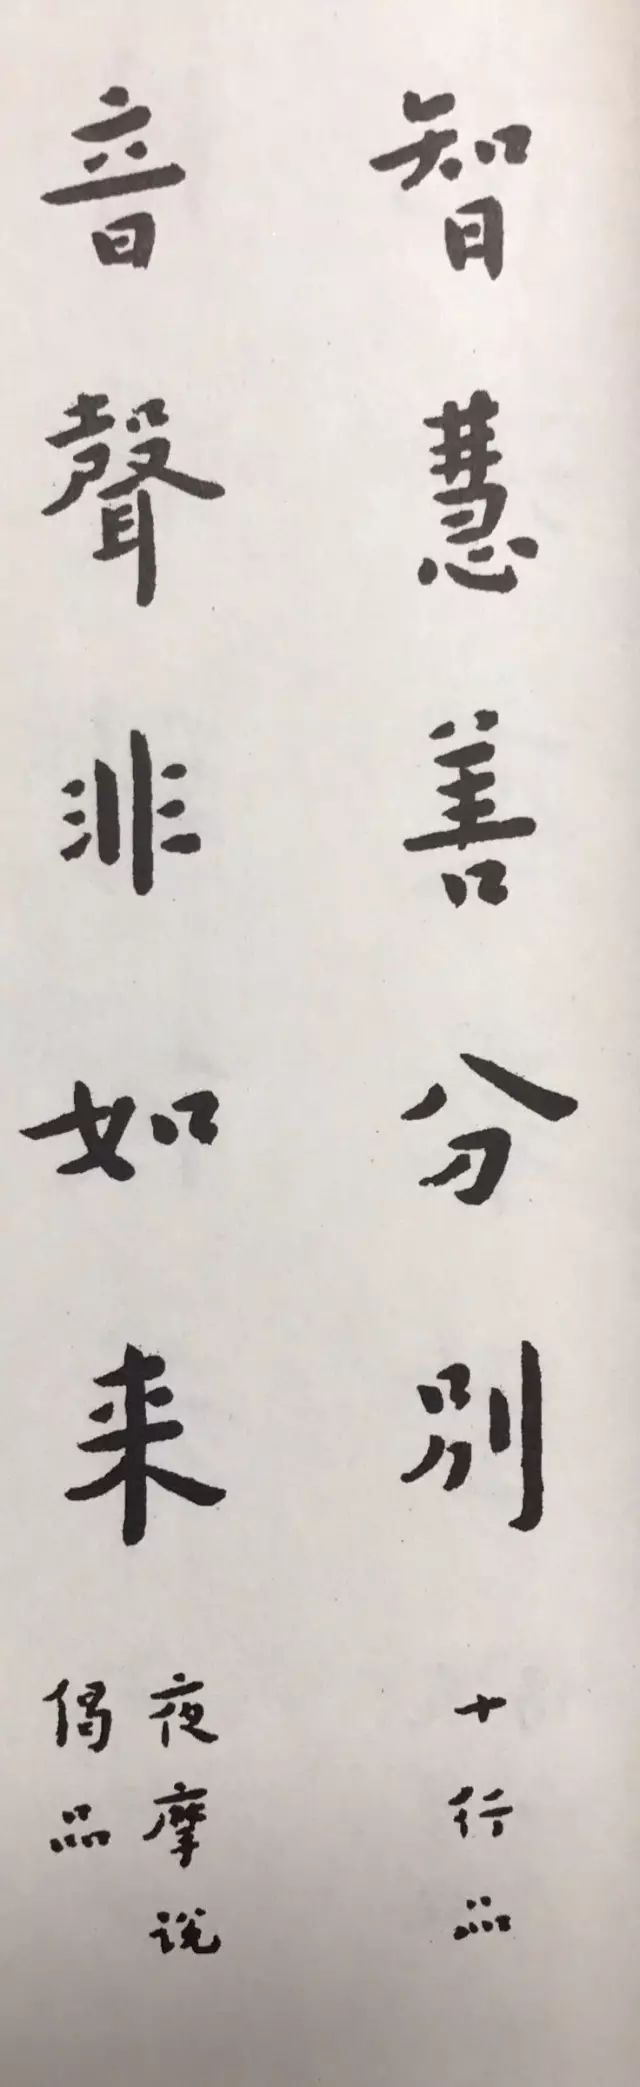 智慧善分別
十行品
音聲非如来
夜摩说
偈品